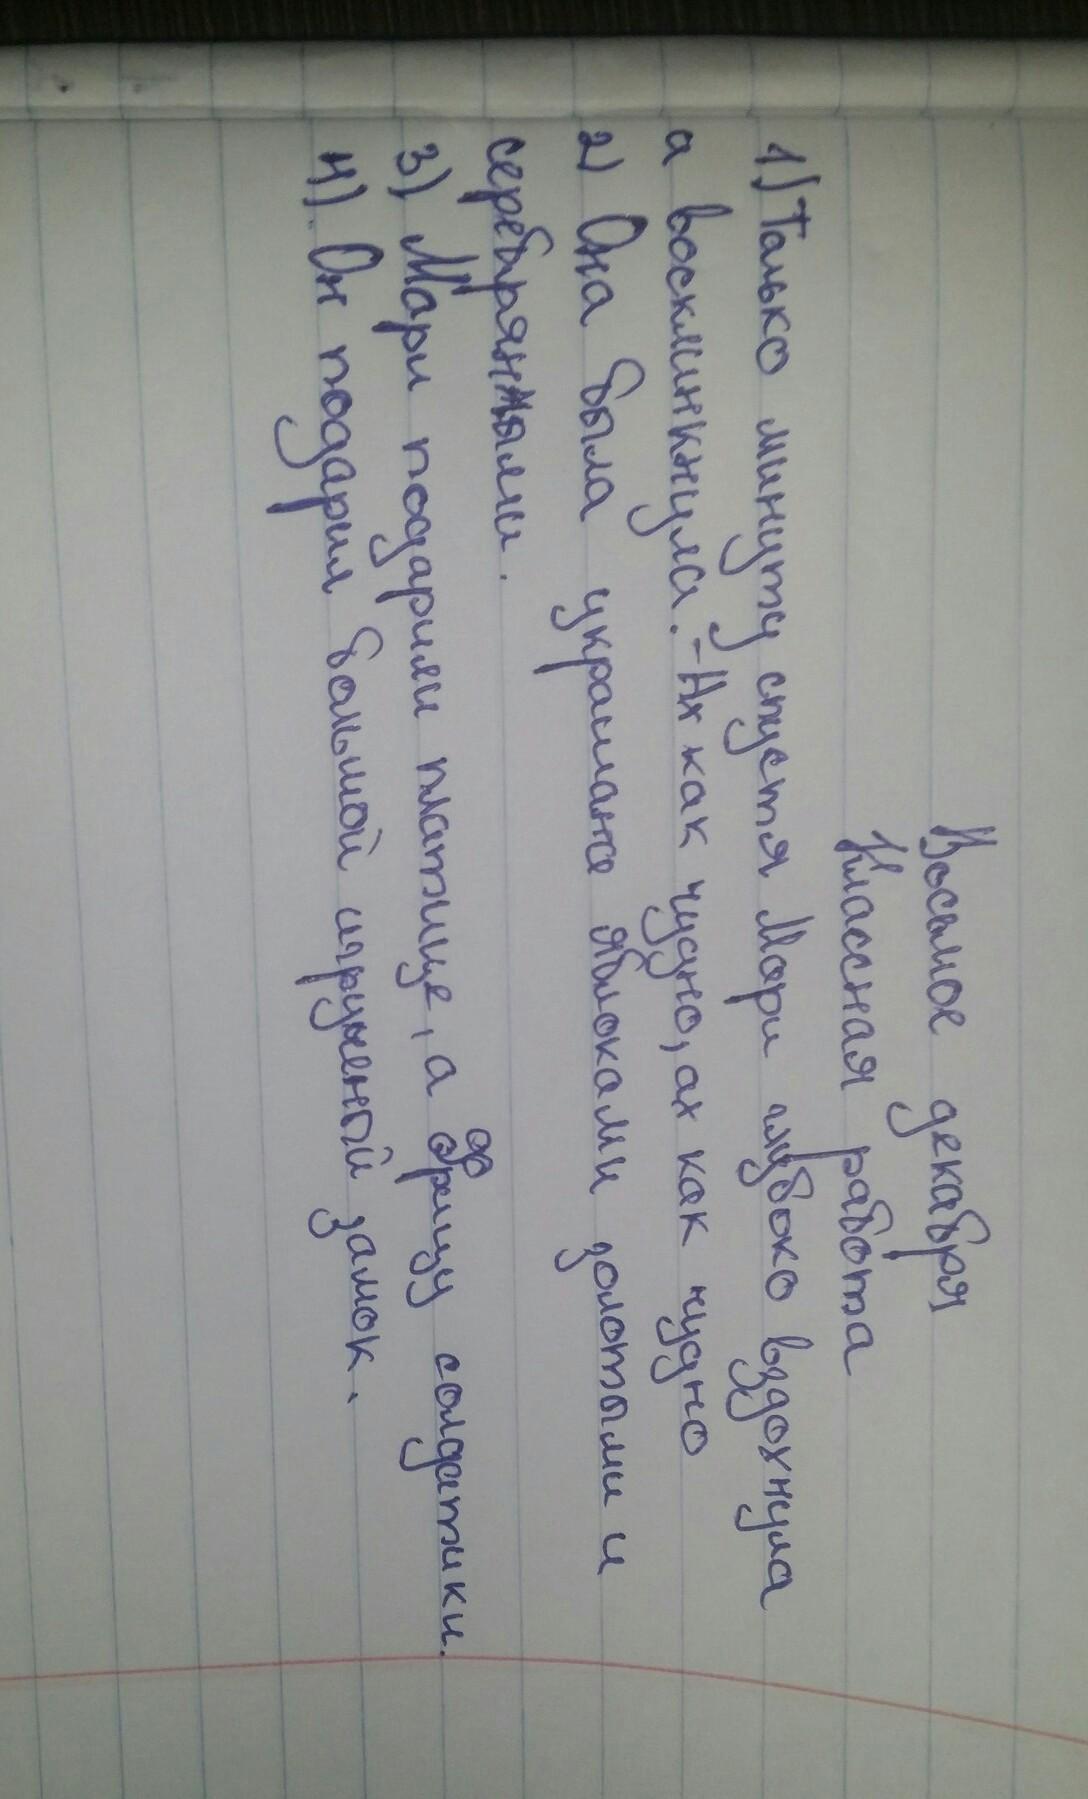 Восьмое декабря
Классная работа
1) Только минуту спустя Мари глубоко вздохнула
а воскминкнула. - Ах как чудно, ах как чудно
2) Она была украшане яблоками золотыми и
серебирянными.
3) Мари подарили платице, а Фрицу солдатики.
4). Он подарил большой игруженой замок.